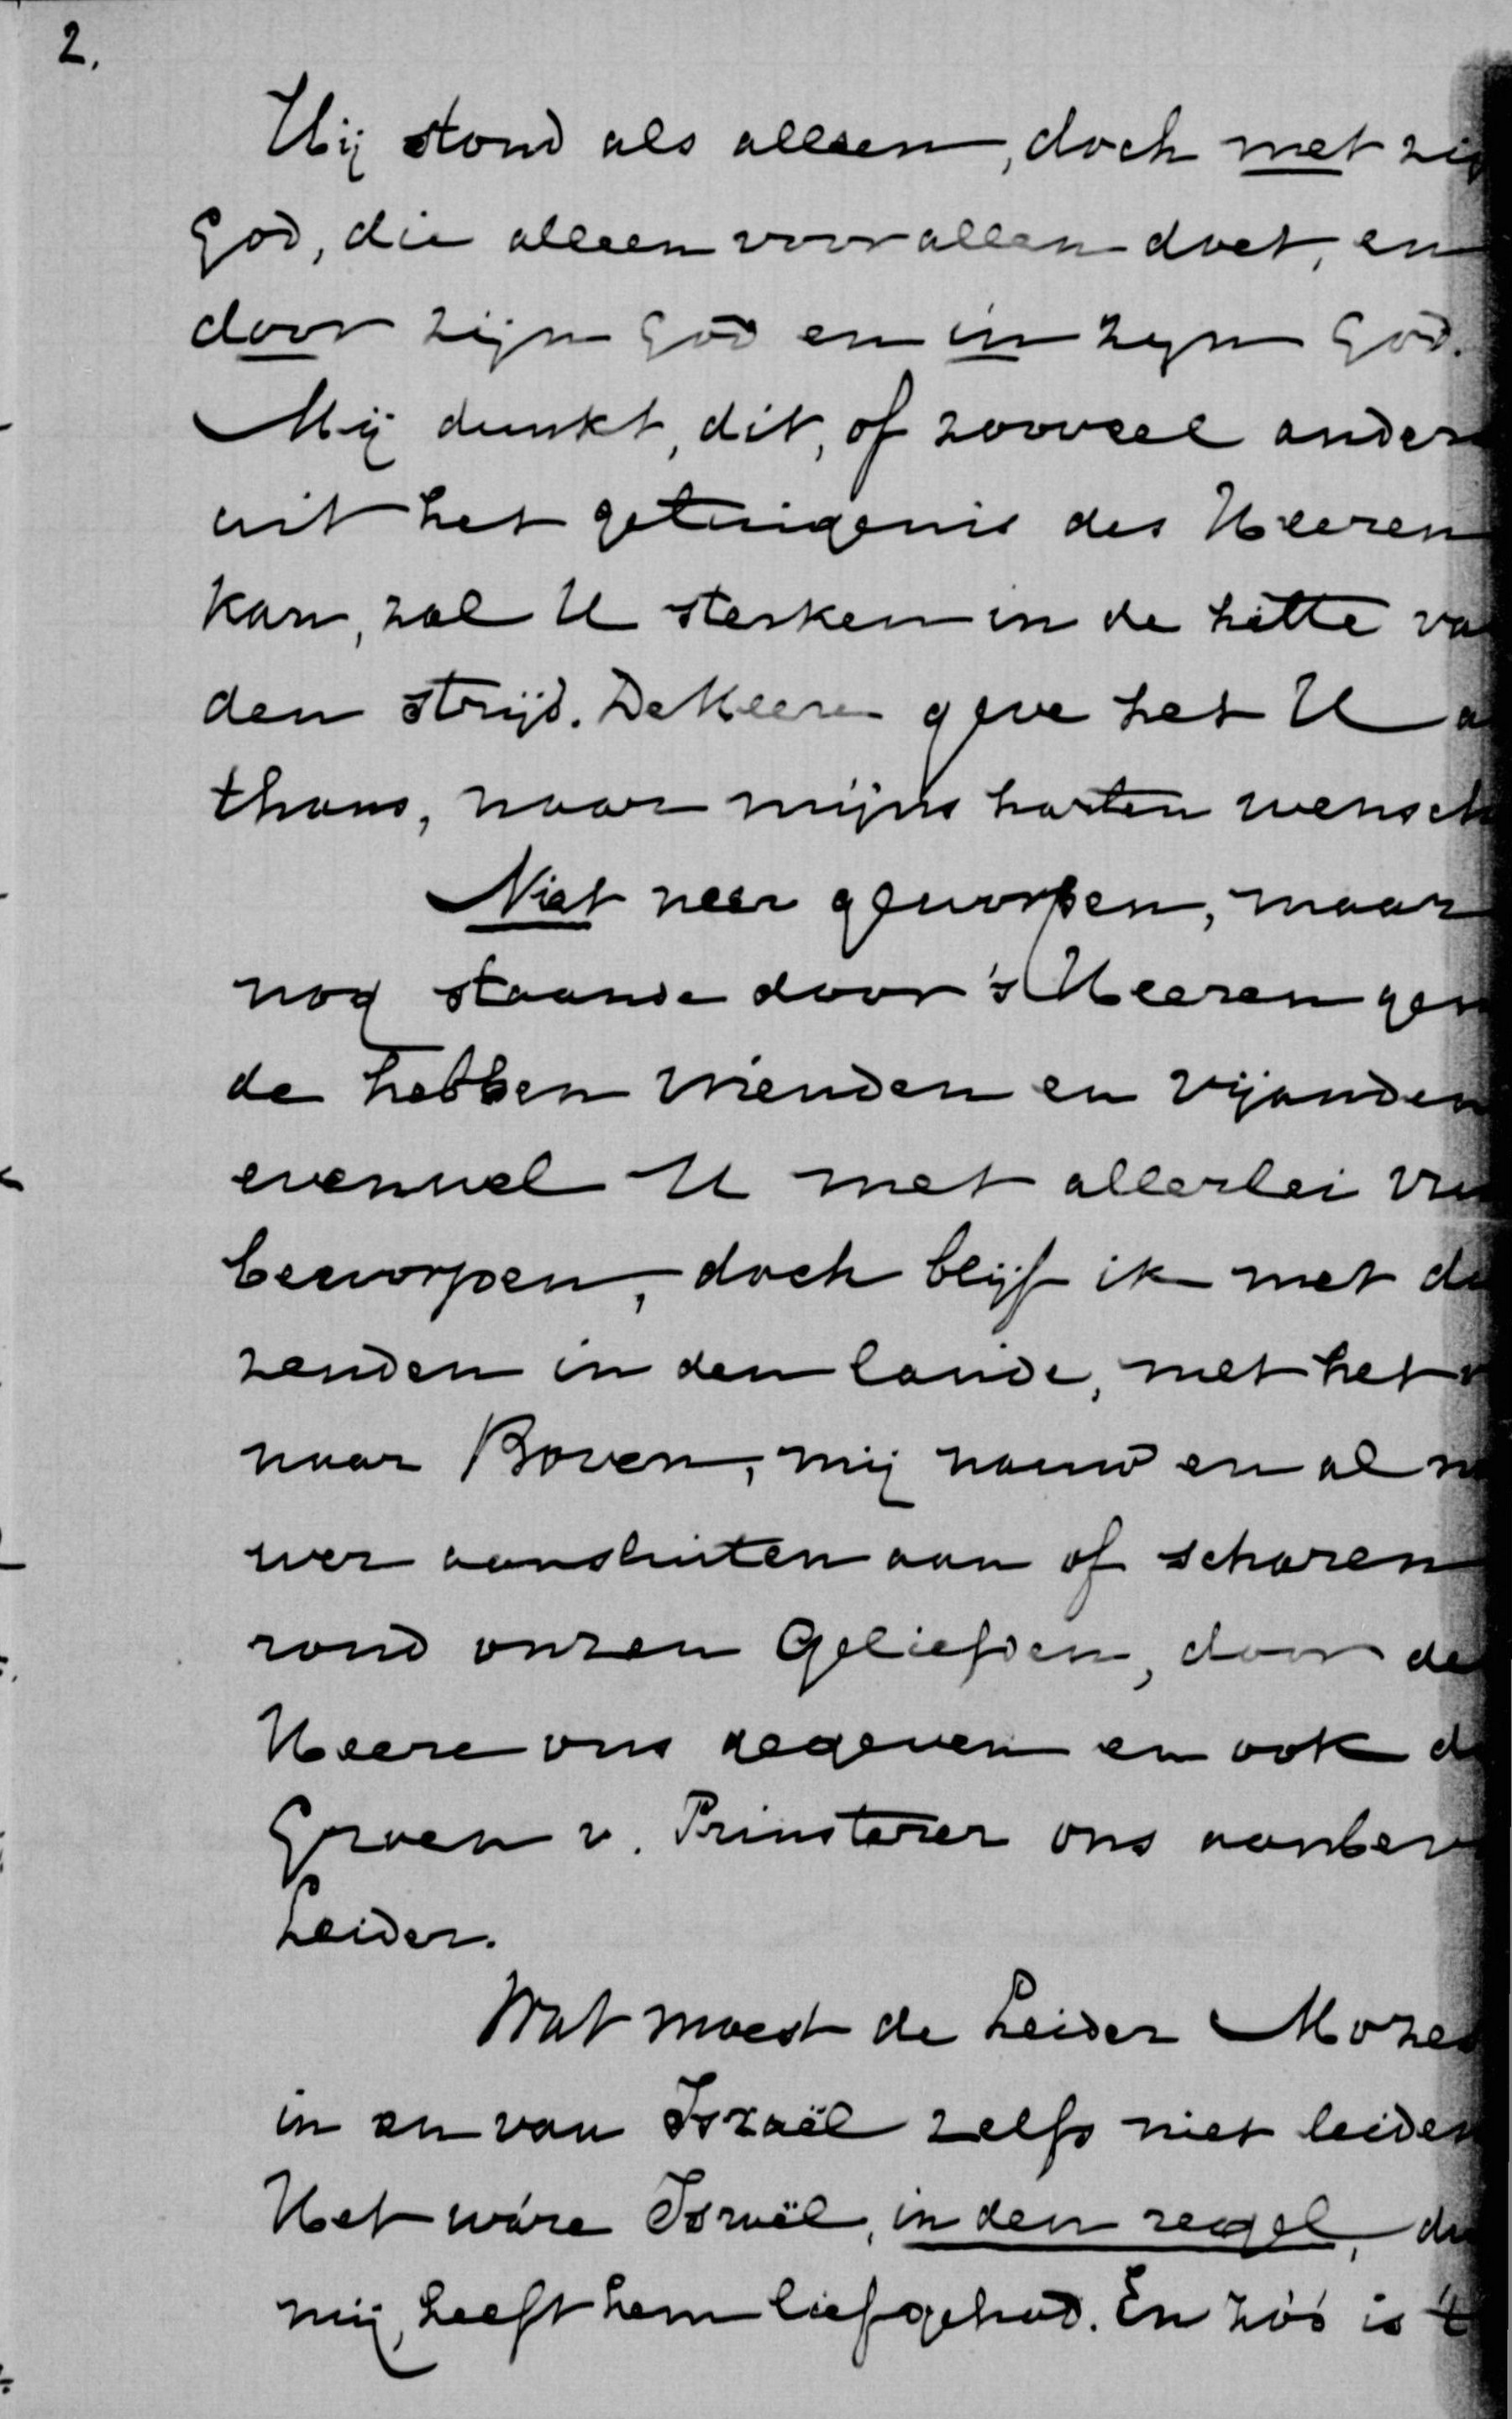 2.
Hij stond als alleen, doch met
God, die alleen voor allen doet, en
door zijn God en in zijn God.
Mij dunkt, dit, of zooveel ander
uit het getuigenis des Heeren
kan, zal U sterken in de hitte va
den strijd. De Heere geve het U a
thans, naar mijns harten wensch
Niet neer geworpen, maar
nog staande door 's Heeren gen
de hebben vrienden en vijanden
evenwel U met allerlei
beworpen, doch blijf ik met du
zenden in den lande, met het
naar Boven, mij nauw en al n
wer aansluiten aan of scharen
rond onzen Geliefden, door de
Heere ons gegeven en ook d
Groen v. Prinsterer ons aanbev
Leider.
Wat moest de Leider Mozes
in en van Israël zelfs niet leiden
Het wáre Israël, in den regel, du
mij, heeft hem liefgehad. En zóó is 't